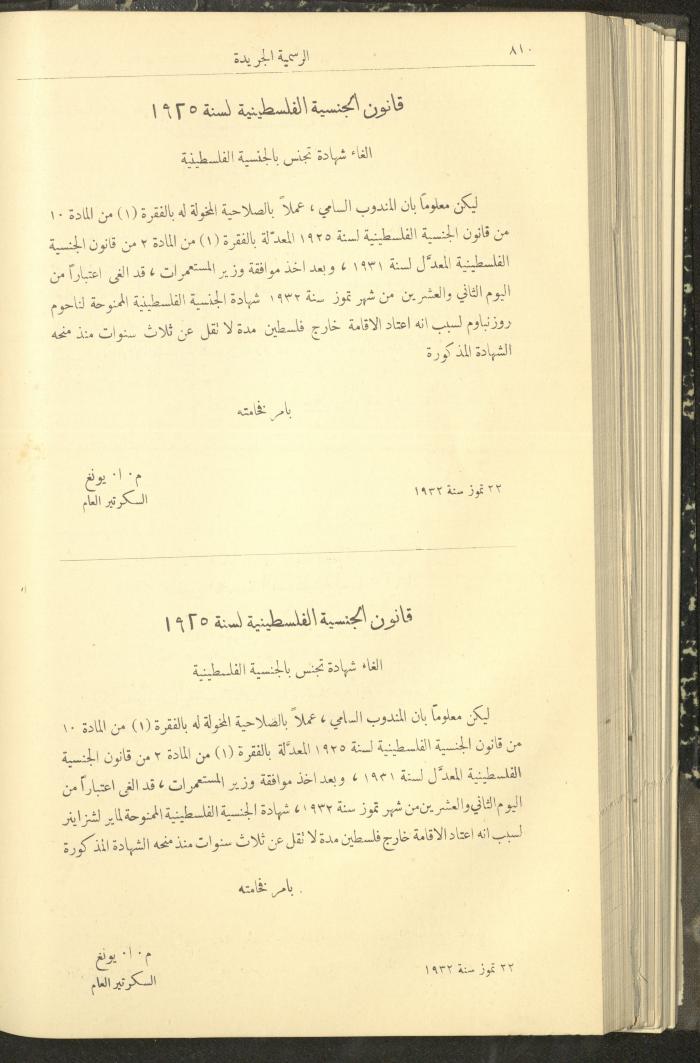 ٨١٠
الرسمية الجريدة
قانون الجنسية الفلسطينية لسنة ١٩٢٥
الغاء شهادة تجنس بالجنسية الفلسطينية
ليكن معلوماً بان المندوب السامي ، عملاً بالصلاحية المخولة له بالفقرة (١) من المادة ١٠
من قانون الجنسية الفلسطينية لسنة ١٩٢٥ المعدّلة بالفقرة (١) من المادة ٢ من قانون الجنسية
الفلسطينية المعدَّل لسنة ١٩٣١ ، وبعد اخذ موافقة وزير المستعمرات ، قد الغى اعتباراً من
اليوم الثاني والعشرين من شهر تموز سنة ١٩٣٢ شهادة الجنسية الفلسطينية الممنوحة لناحوم
روزنباوم لسبب انه اعتاد الاقامة خارج فلسطين مدة لا تقل عن ثلاث سنوات منذ منحه
الشهادة المذكورة
بامر فخامته
٢٢ تموز سنة ١٩٣٢
م٠ ا٠ يونغ
السكرتير العام
قانون الجنسية الفلسطينية لسنة ١٩٢٥
الغاء شهادة تجنس بالجنسية الفلسطينية
ليكن معلوماً بان المندوب السامي ، عملاً بالصلاحية المخولة له بالفقرة (١) من المادة ١٠
من قانون الجنسية الفلسطينية لسنة ١٩٢٥ المعدَّلة بالفقرة (١) من المادة ٢ من قانون الجنسية
الفلسطينية المعدَّل لسنة ١٩٣١ ، وبعد اخذ موافقة وزير المستعمرات ، قد الغى اعتباراً من
اليوم الثاني والعشرين من شهر تموز سنة ١٩٣٢ ، شهادة الجنسية الفلسطينية الممنوحة لماير لشزاينر
لسبب انه اعتاد الاقامة خارج فلسطين مدة لا تقل عن ثلاث سنوات منذ منحه الشهادة المذكورة
بامر فخامته
٢٢ تموز سنة ١٩٣٢
م٠ ا٠ يونغ
السكرتير العام